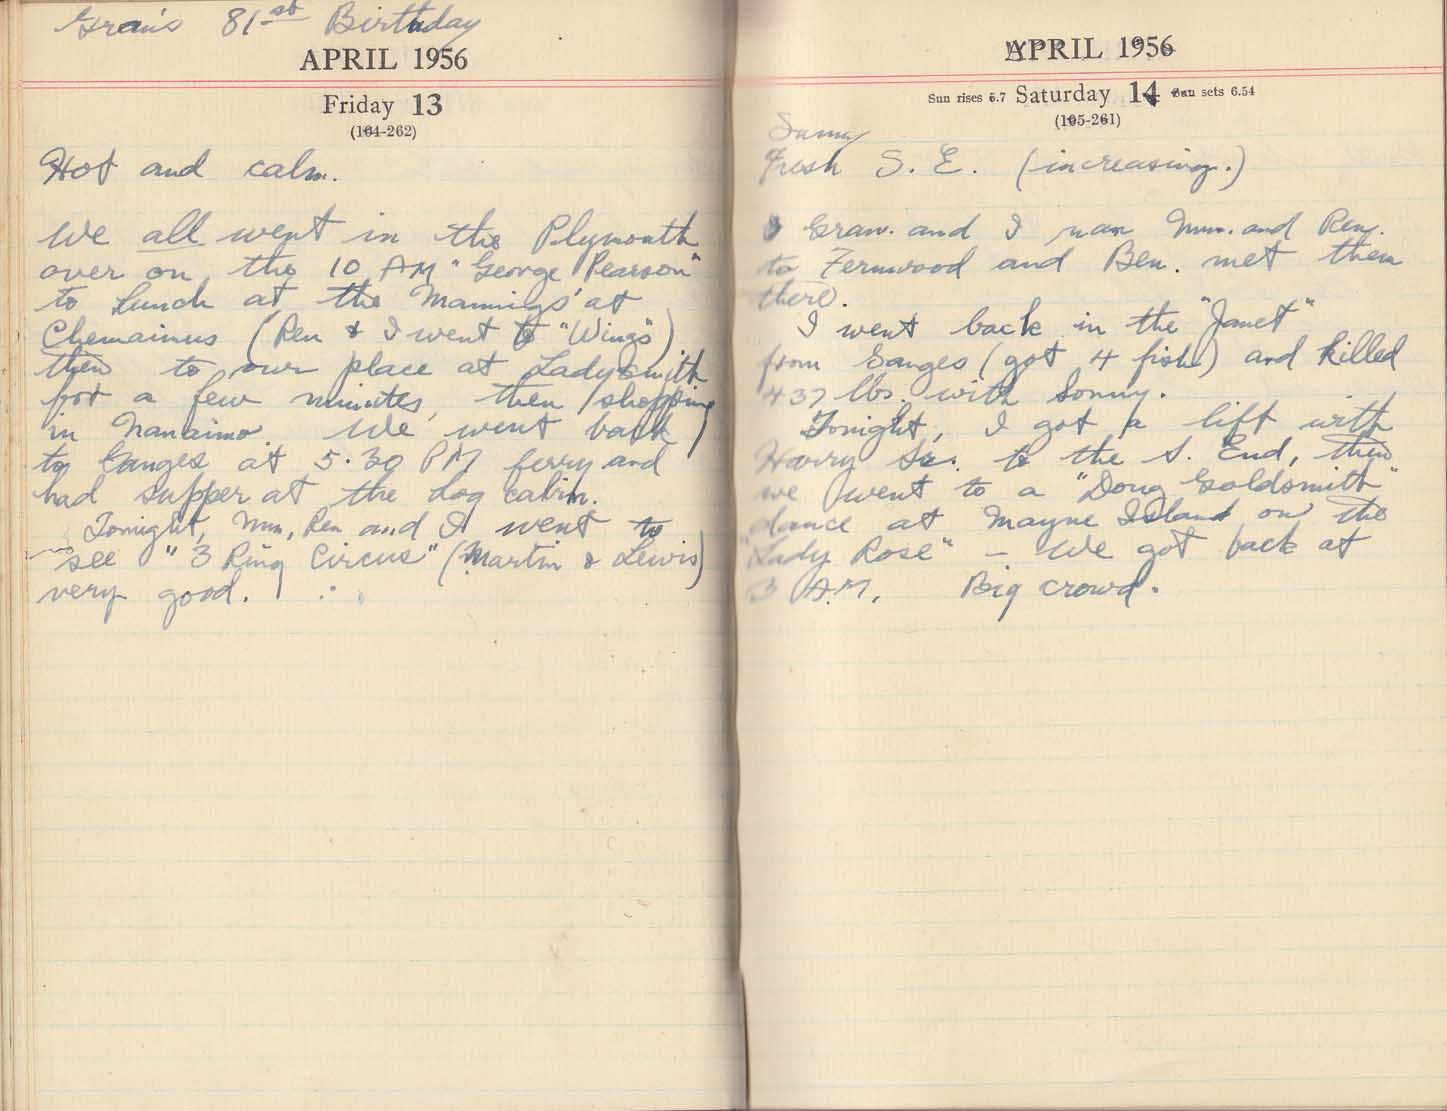 Gran's 81st Birthday
APRIL 1956
Friday 13
(104-262)
Hot and calm.
We all went in the Plymouth
over on the 10 AM "George Pearson"
to lunch at the Mannings' at
Chemainus (Pen & I went to "Wings")
then to our place at Ladysmith
for a few minutes, then shopping
in Nanaimo. We went back
to Ganges at 5.30 PM ferry and
had supper at the log cabin.
Tonight, Mum, Pen and I went to
see "3 Ring Circus" (Martin & Lewis)
very good.
APRIL 1956
Sun rises 5.7 Saturday 14 Sun sets 6.54
(105-261)
Sunny
Fresh S. E. (increasing.)
Gran. and I ran Mum. and Pen.
to Fernwood and Ben. met them
there.
I went back in the "Janet"
from Ganges (got 4 fish) and killed
437 lbs. with Sonny.
Tonight, I got a lift with
Harry Sr. to the S. End, then
we went to a "Doug Goldsmith"
dance at Mayne Island on the
"Lady Rose" - We got back at
3 A.M. Big crowd.